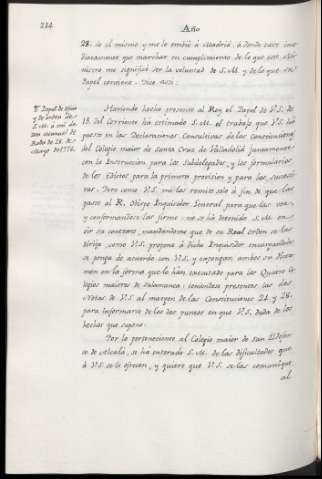 224
Año
28. de el mismo y me le embió à Madrid, à donde tuve inme-
diatamente que marchar en cumplimiento de lo que este Mi-
nistro me significó ser la voluntad de S.M. y de lo que su
Papel contiene. Dice asi:
Papel de oficio
y de orden de
S.M. à mi de
Don Manuel de
Roda de 28. de
Marzo de 1776.
Haviendo hecho presente al Rey el Papel de V.S. de
13. del corriente ha estimado S.M. el trabajo que V.S. ha
puesto en las Declaraciones Consultivas de las Constituciones
del Colegio maior de Santa Cruz de Valladolid juntamente
con la Instruccion para los Subdelegados, y los formularios
de los Edictos para la primera provision y para las sucesi-
vas. Pero como V.S. me las remite solo à fin de que las
pase al R. Obispo Inquisidor General para que las vea,
y conformandose las firme no se ha detenido S.M. en
oir su contexto, mandandome que de su Real orden se las
dirija, como V.S. propone à dicho Inquisidor encargandole
se ponga de acuerdo con V.S. y expongan ambos su Dicta-
men en la forma que lo han executado para los Quatro Co-
legios maiores de Salamanca; teniendose presentes las dos
Notas de V.S. al margen de las Constituciones 24. y 28.
para informarse de los dos puntos en que V.S. duda de los
hechos que supone.
Por lo perteneciente al Colegio maior de San Ildefon-
so de Alcala, se ha enterado S.M. de las dificultades que
à V.S. se le ofrecen, y quiere que V.S. se las comunique
al